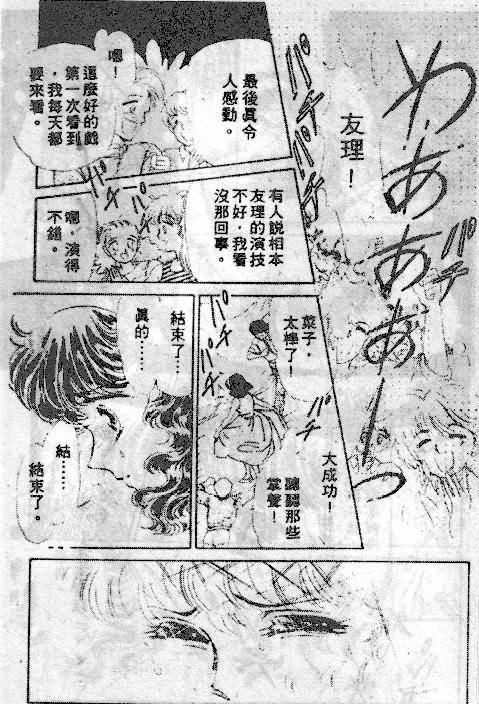 わあああーっ
パチ
友理！
パチ
パチ
最後真令
人感動。
嗯！
這麼好的戲
第一次看到
，我每天都
要來看。
パチ
有人說相本
友理的演技
不好，我看
沒那回事。
嗯，演得
不錯。
菜子，
太棒了！
パチ
パチ
大成功！
聽聽那些
掌聲！
結束了…
真的……
結……
結束了。